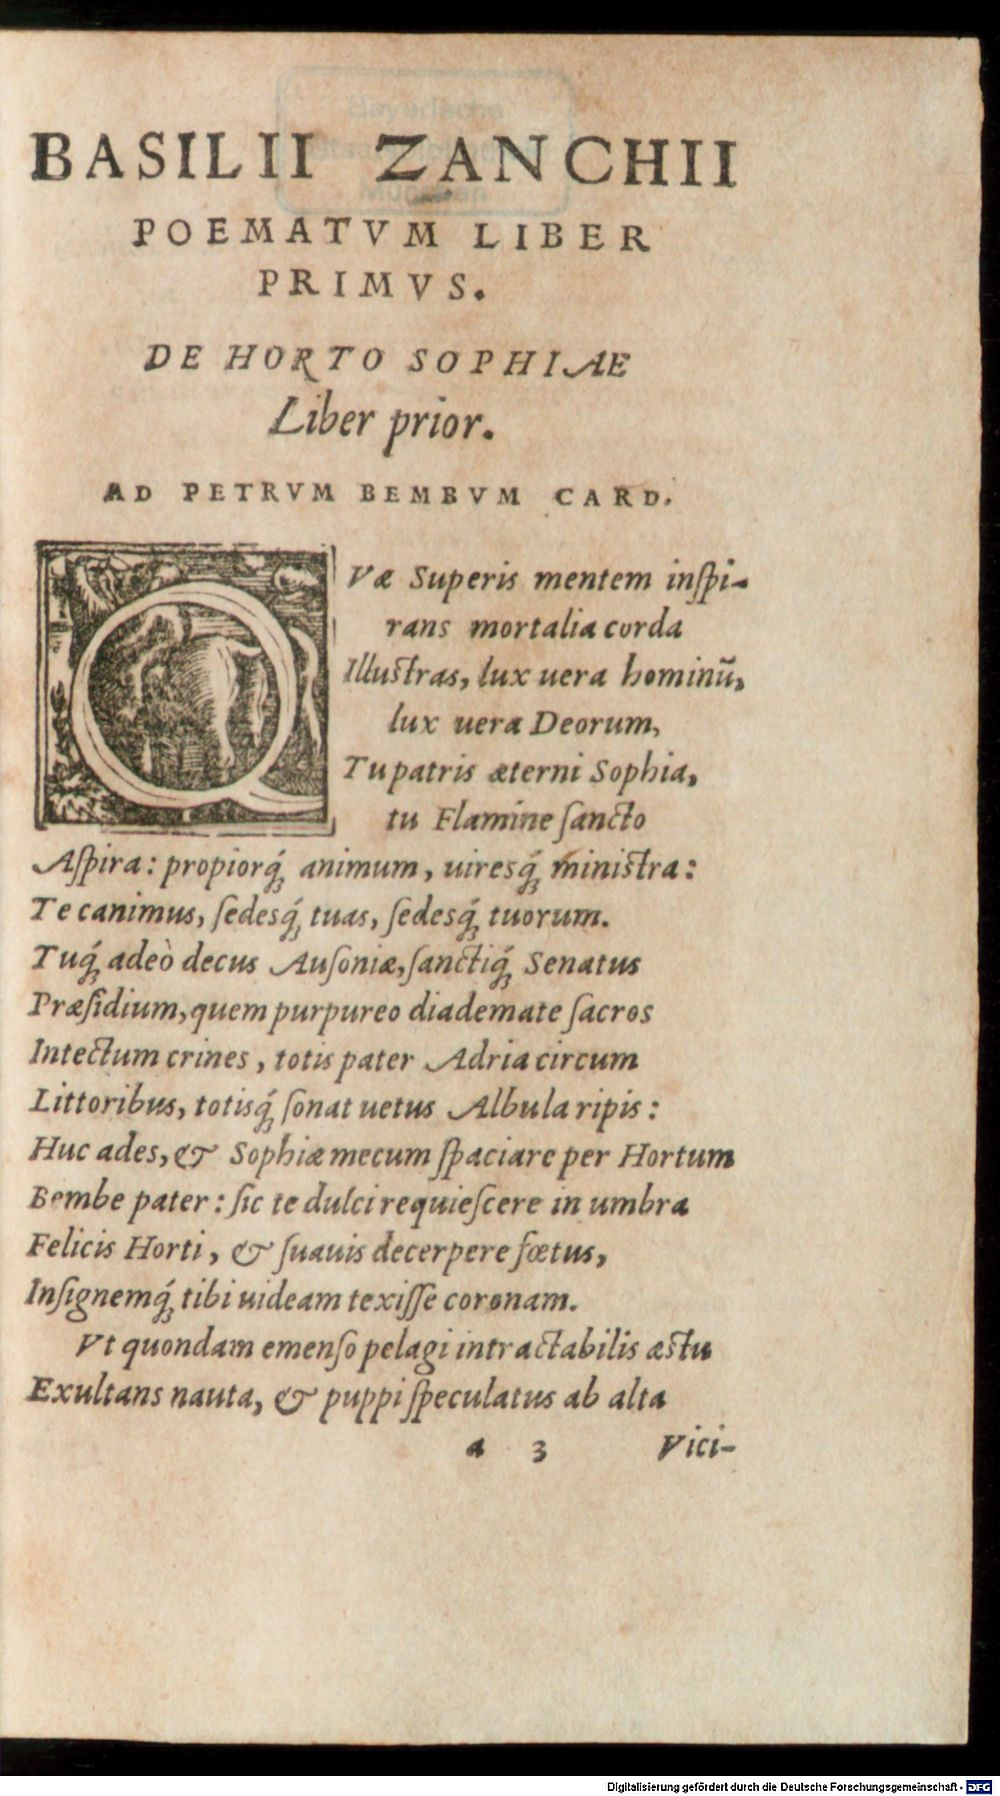 Bayerische
Staatsbibliothek
München
BASILII ZANCHII
POEMATVM LIBER
PRIMVS.
DE HORTO SOPHIAE
Liber prior.
AD PETRVM BEMBVM CARD.
QVæ Superis mentem inſpi-
rans mortalia corda
Illuſtras, lux uera hominũ,
lux uera Deorum,
Tu patris æterni Sophia,
tu Flamine ſancto
Aſpira: propiorq́; animum, uiresq́; miniſtra:
Te canimus, ſedesq́; tuas, ſedesq́; tuorum.
Tuq́; adeò decus Auſoniæ, ſanctiq́; Senatus
Præſidium, quem purpureo diademate ſacros
Intectum crines, totis pater Adria circum
Littoribus, totisq́; ſonat uetus Albula ripis:
Huc ades, & Sophiæ mecum ſpaciare per Hortum
Bembe pater: ſic te dulci requieſcere in umbra
Felicis Horti, & ſuauis decerpere fœtus,
Inſignemq́; tibi uideam texiſſe coronam.
Vt quondam emenſo pelagi intractabilis æſtu
Exultans nauta, & puppi ſpeculatus ab alta
a 3 Vici-
Digitalisierung gefördert durch die Deutsche Forschungsgemeinschaft - DFG